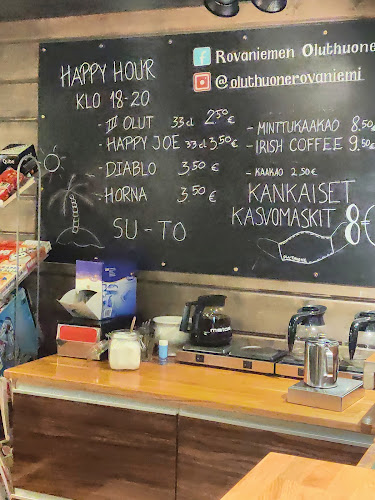 HAPPY HOUR
KLO 18-20
- III OLUT 33 cl 2,50 €
- HAPPY JOE 33 cl 3,50 €
- DIABLO 3,50 €
- HORNA 3,50 €
SU - TO
f Rovaniemen Oluthuone
@oluthuonerovaniemi
- MINTTUKAAKAO 8,50
- IRISH COFFEE 9,50€
- KAAKAO 2,50€
KANKAISET
KASVOMASKIT 8€